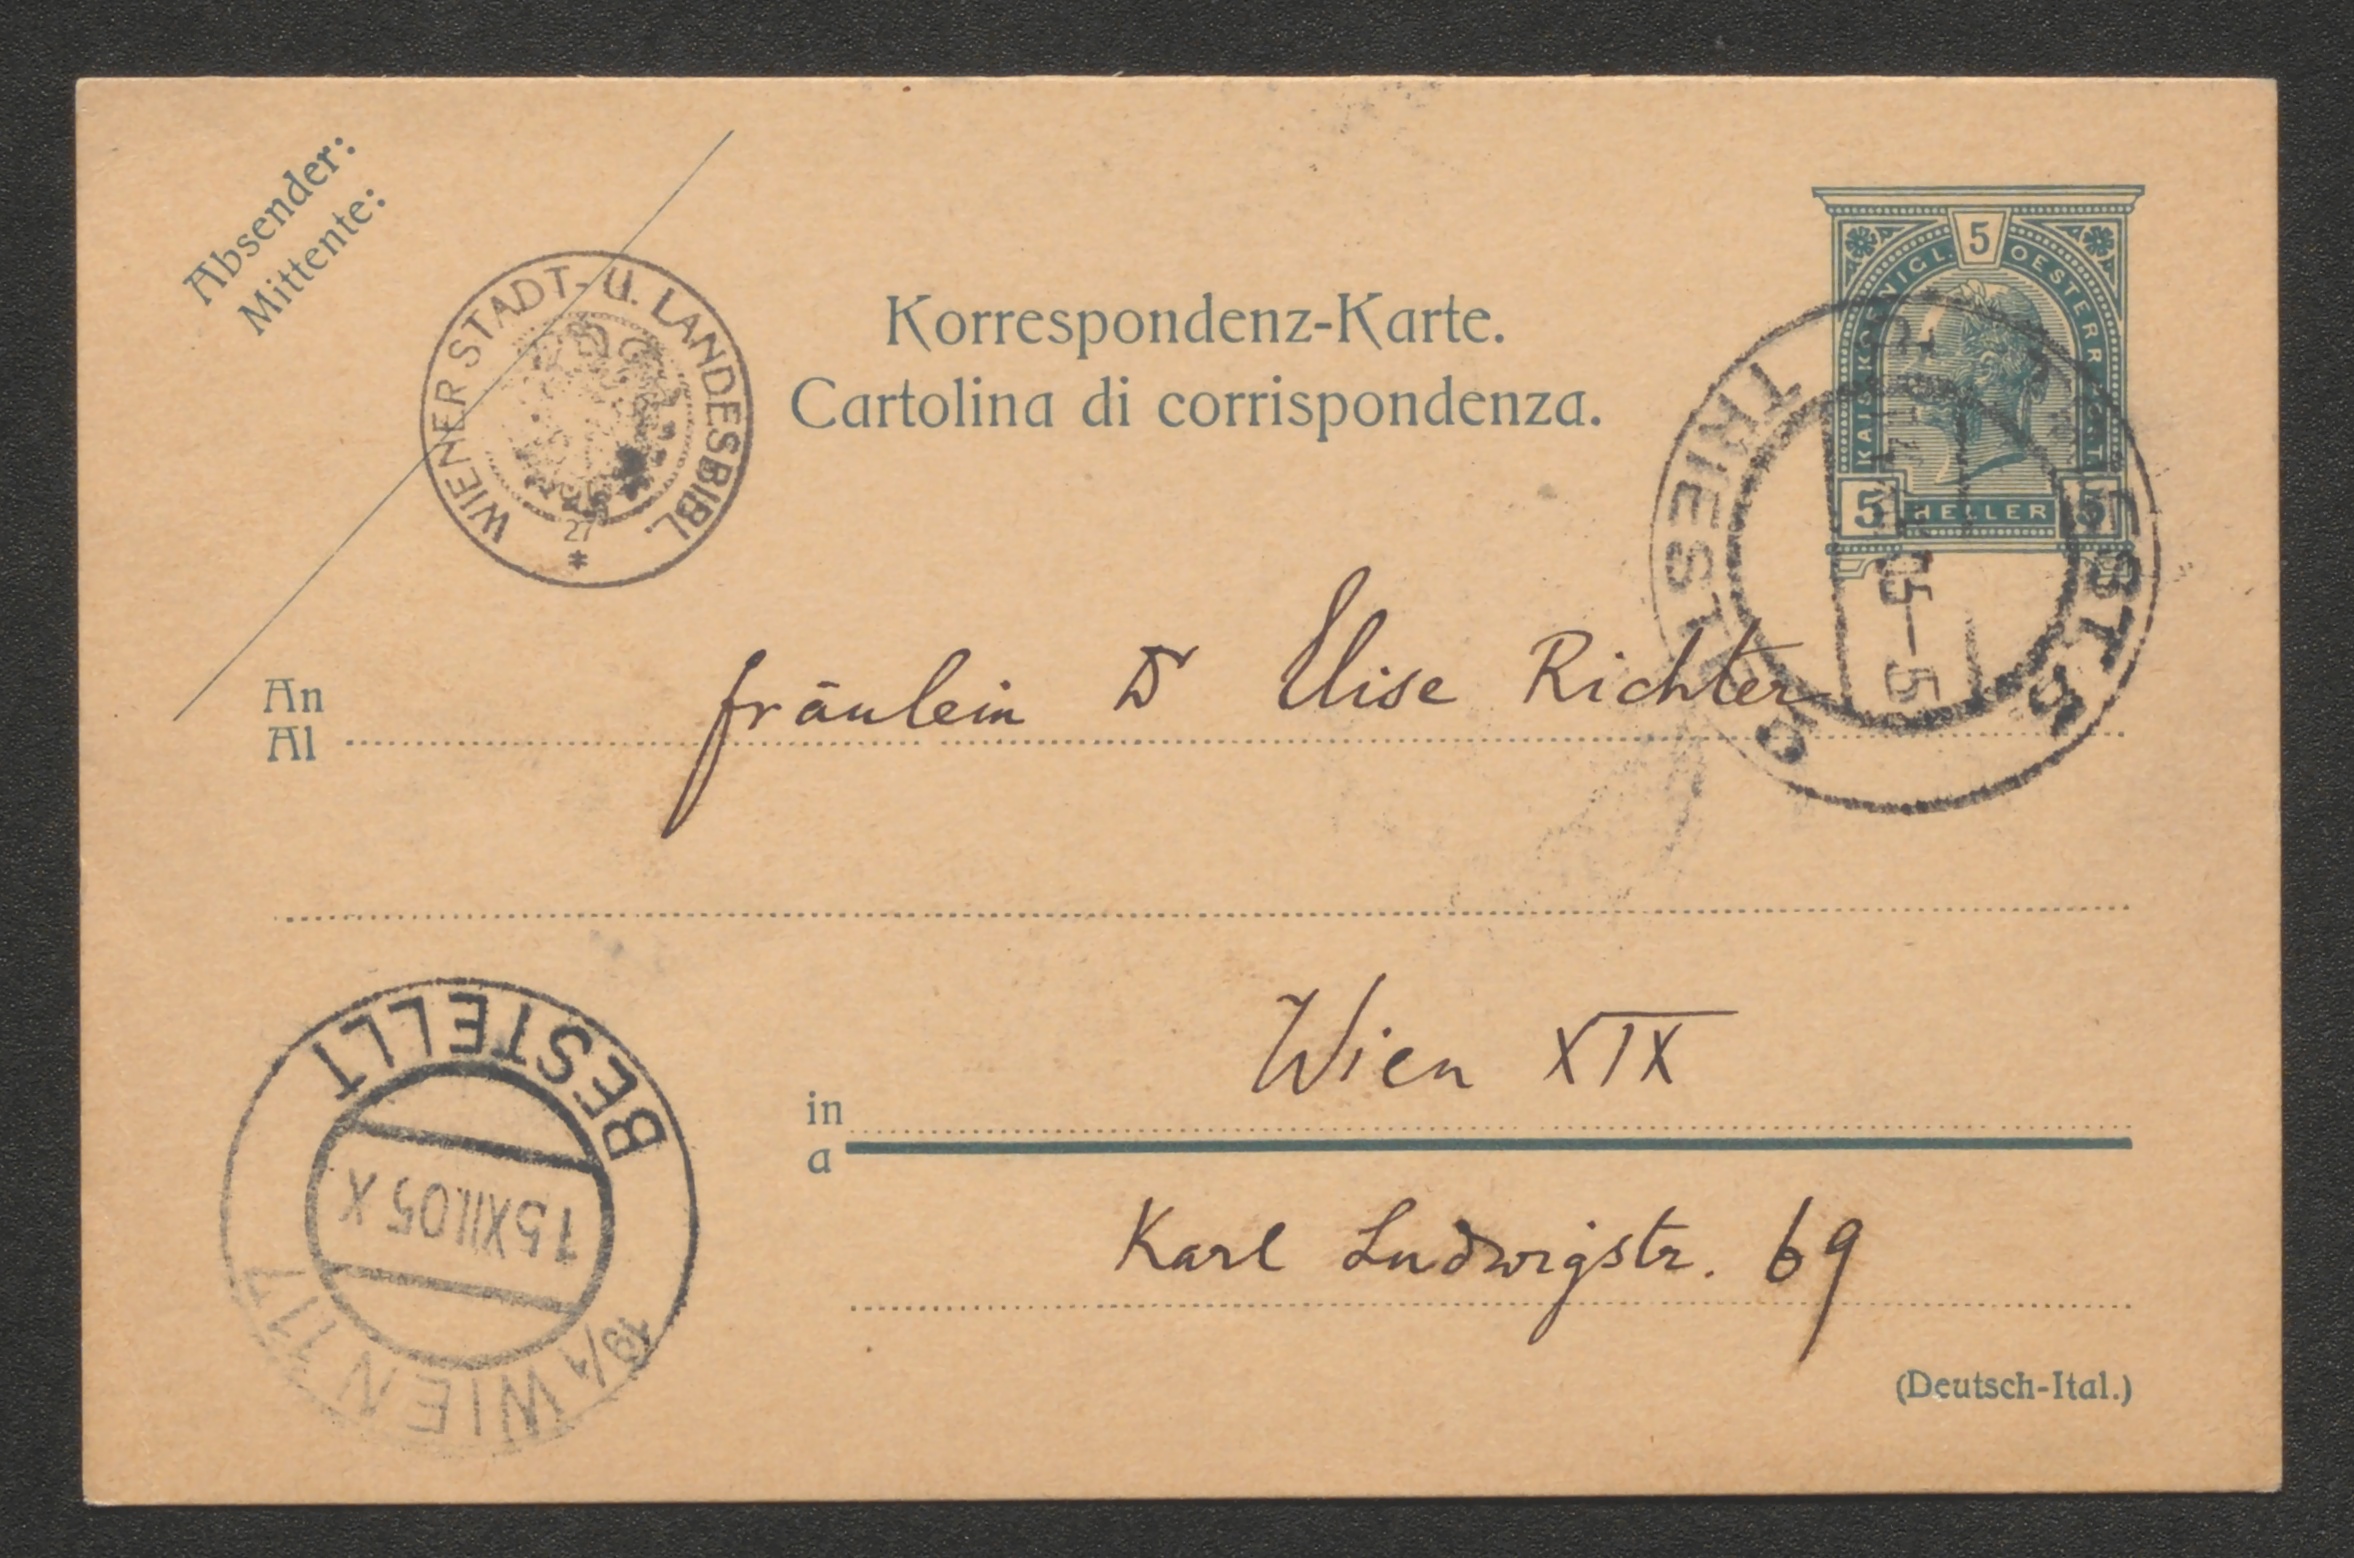 Absender:
Mittente:
WIENER STADT- U. LANDESBIBL.
27
Korrespondenz-Karte.
Cartolina di corrispondenza.
5
KAIS. KOENIGL. OESTERR. POST
5 HELLER 5
TRIEST
5
An
Al
fräulein Dr Elise Richter
Wien XIX
in
a
Karl Ludwigstr. 69
BESTELLT
15 XII.05 X
19/1 WIEN 117
(Deutsch-Ital.)